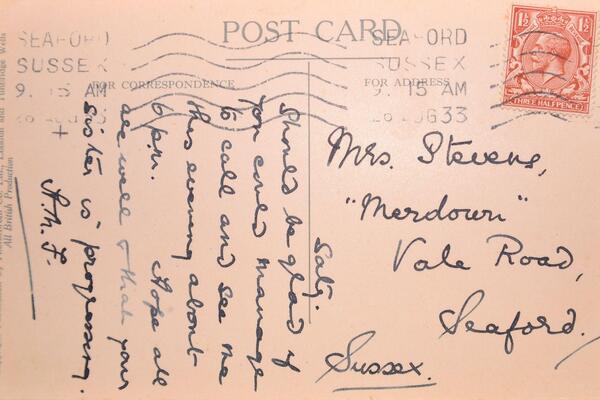 POST CARD
SEAFORD
SUSSEX
9. 15 AM
26 AUG 33
SEAFORD
SUSSEX
9. 15 AM
26 AUG 33
1½
1½
THREE HALFPENCE
FOR CORRESPONDENCE
FOR ADDRESS
Saty.
Should be glad if
you could manage
to call and see me
this evening about
6 p.m. Hope all
are well & that your
sister is progressing.
A.M.F.
Mrs. Stevens,
"Merdown"
Vale Road,
Seaford.
Sussex.
Co. Ltd., London and Tunbridge Wells
All British Production